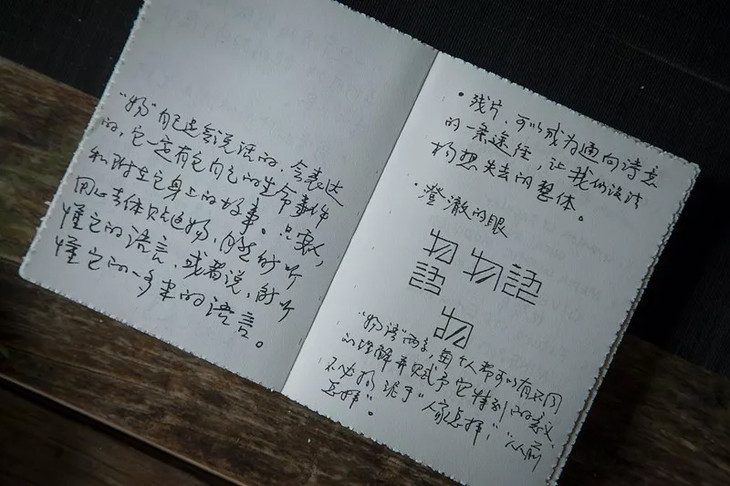 “物”自己是会说话的，会表达
的，它一定有它自己的生命事件
和附生它身上的故事。只要人
用心去体贴这物，自是能听
懂它的语言，或者说，能听
懂它的一多半的语言。
·残片，可以成为通向诗意
的一条途径，让我们设法
构想失去的整体。
·澄澈的眼
物 物語
語
物
“物语”两字，每个人都可以有不同
的理解并赋予它特别的意义，
不必拘泥于“人家怎样”，“从前
怎样”。